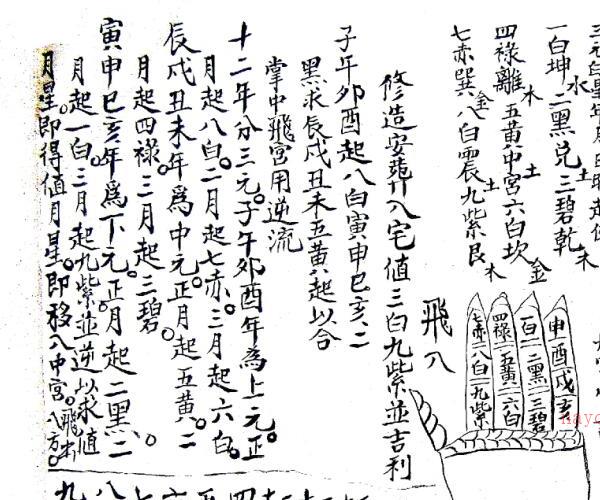 一白坤水二黑兌土三碧乾木
四祿離木五黃中宮土六白坎金
七赤巽金八白震土九紫艮木
修造安葬入宅值三白九紫並吉利
子午卯酉起八白寅申巳亥二
黑求辰戌丑未五黃起以合
掌中飛宮用逆流
十二年分三元。子午卯酉年為上元。正
月起八白。二月起七赤。三月起六白。
辰戌丑未年為中元。正月起五黃。二
月起四祿。三月起三碧。
寅申巳亥年為下元。正月起二黑。二
月起一白。三月起九紫。並逆以求值
月星。即得值月星。即移入中宮。飛八方。
飛八
申酉戌亥
一白二黑三碧
四祿五黃六白
七赤八白九紫